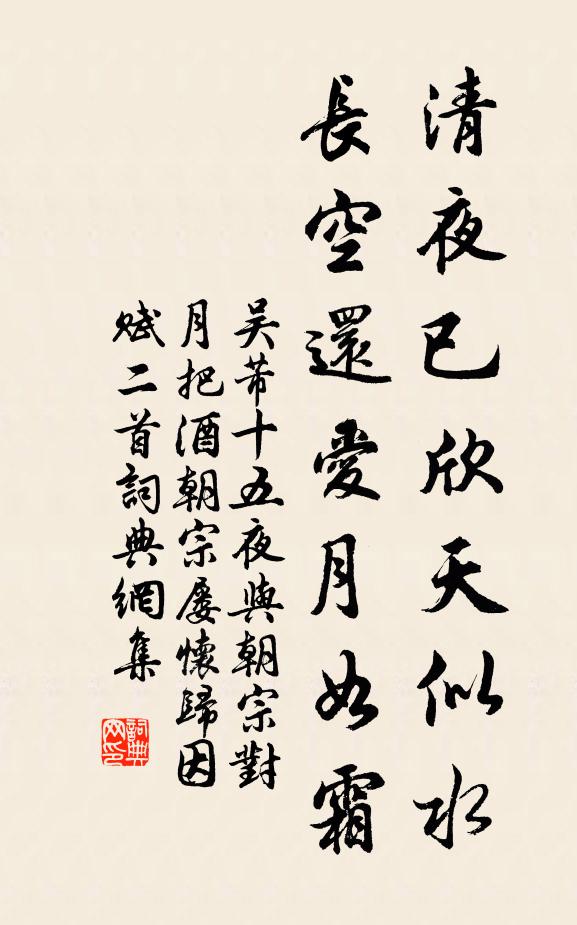 清夜已欣天似水
長空還愛月如霜
吳芾十五夜與朝宗對
月把酒朝宗屡懷歸因
賦二首詞典網集
詞典
网印